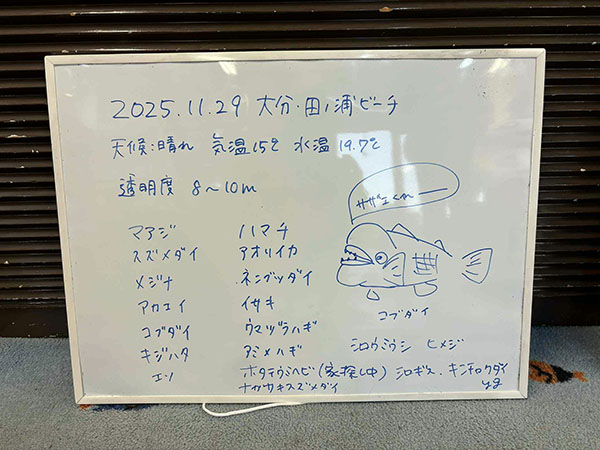 2025.11.29 大分・田ノ浦ビーチ
天候:晴れ 気温15℃ 水温 19.7℃
透明度 8~10m
マアジ
スズメダイ
メジナ
アカエイ
コブダイ
キジハタ
エソ
ハマチ
アオリイカ
ネンブツダイ
イサキ
ウマヅラハギ
アミメハギ
ホタテウミヘビ(家探し中) シロギス、キンチャクダイ
ナガサキスズメダイ
サザエくれー
コブダイ
シロウミウシ ヒメジ